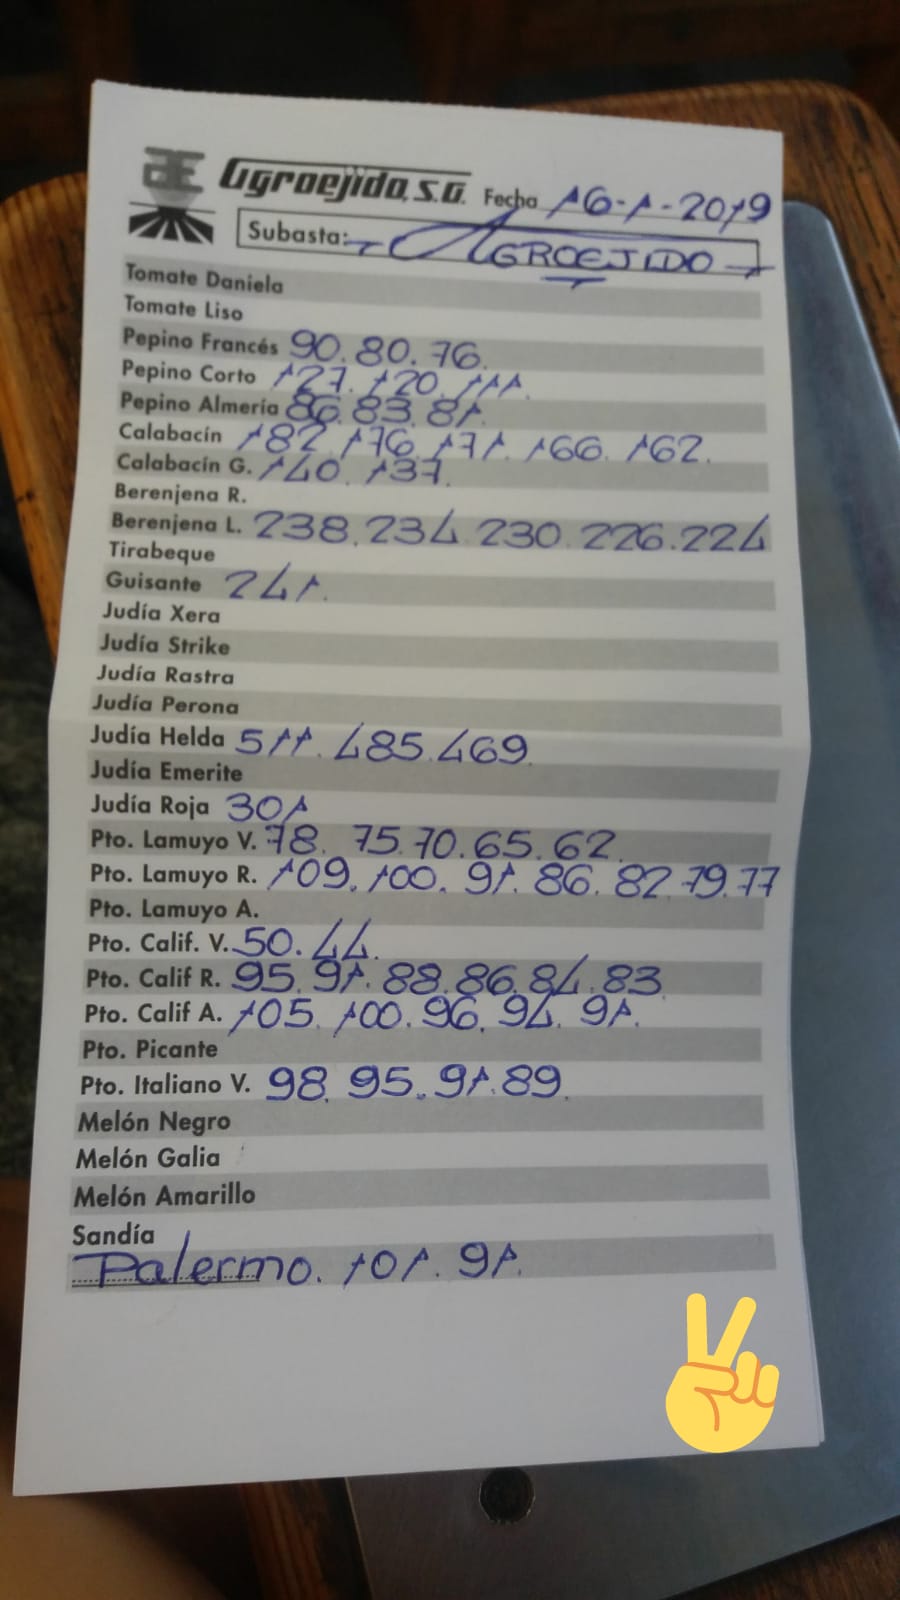 Agroejido, S.A. Fecha 16-1-2019
Subasta: AGROEJIDO
Tomate Daniela
Tomate Liso
Pepino Francés 90. 80. 76.
Pepino Corto 127. 120. 111.
Pepino Almería 86. 83. 81.
Calabacín 182. 176. 171. 166. 162.
Calabacín G. 140. 137.
Berenjena R.
Berenjena L. 238. 234. 230. 226. 224
Tirabeque
Guisante 241.
Judía Xera
Judía Strike
Judía Rastra
Judía Perona
Judía Helda 511. 485. 469.
Judía Emerite
Judía Roja 301
Pto. Lamuyo V. 78. 75. 70. 65. 62.
Pto. Lamuyo R. 109. 100. 91. 86. 82. 79. 77
Pto. Lamuyo A.
Pto. Calif. V. 50. 44.
Pto. Calif R. 95. 91. 88. 86. 84. 83.
Pto. Calif A. 105. 100. 96. 94. 91.
Pto. Picante
Pto. Italiano V. 98. 95. 91. 89.
Melón Negro
Melón Galia
Melón Amarillo
Sandía
Palermo. 101. 91.